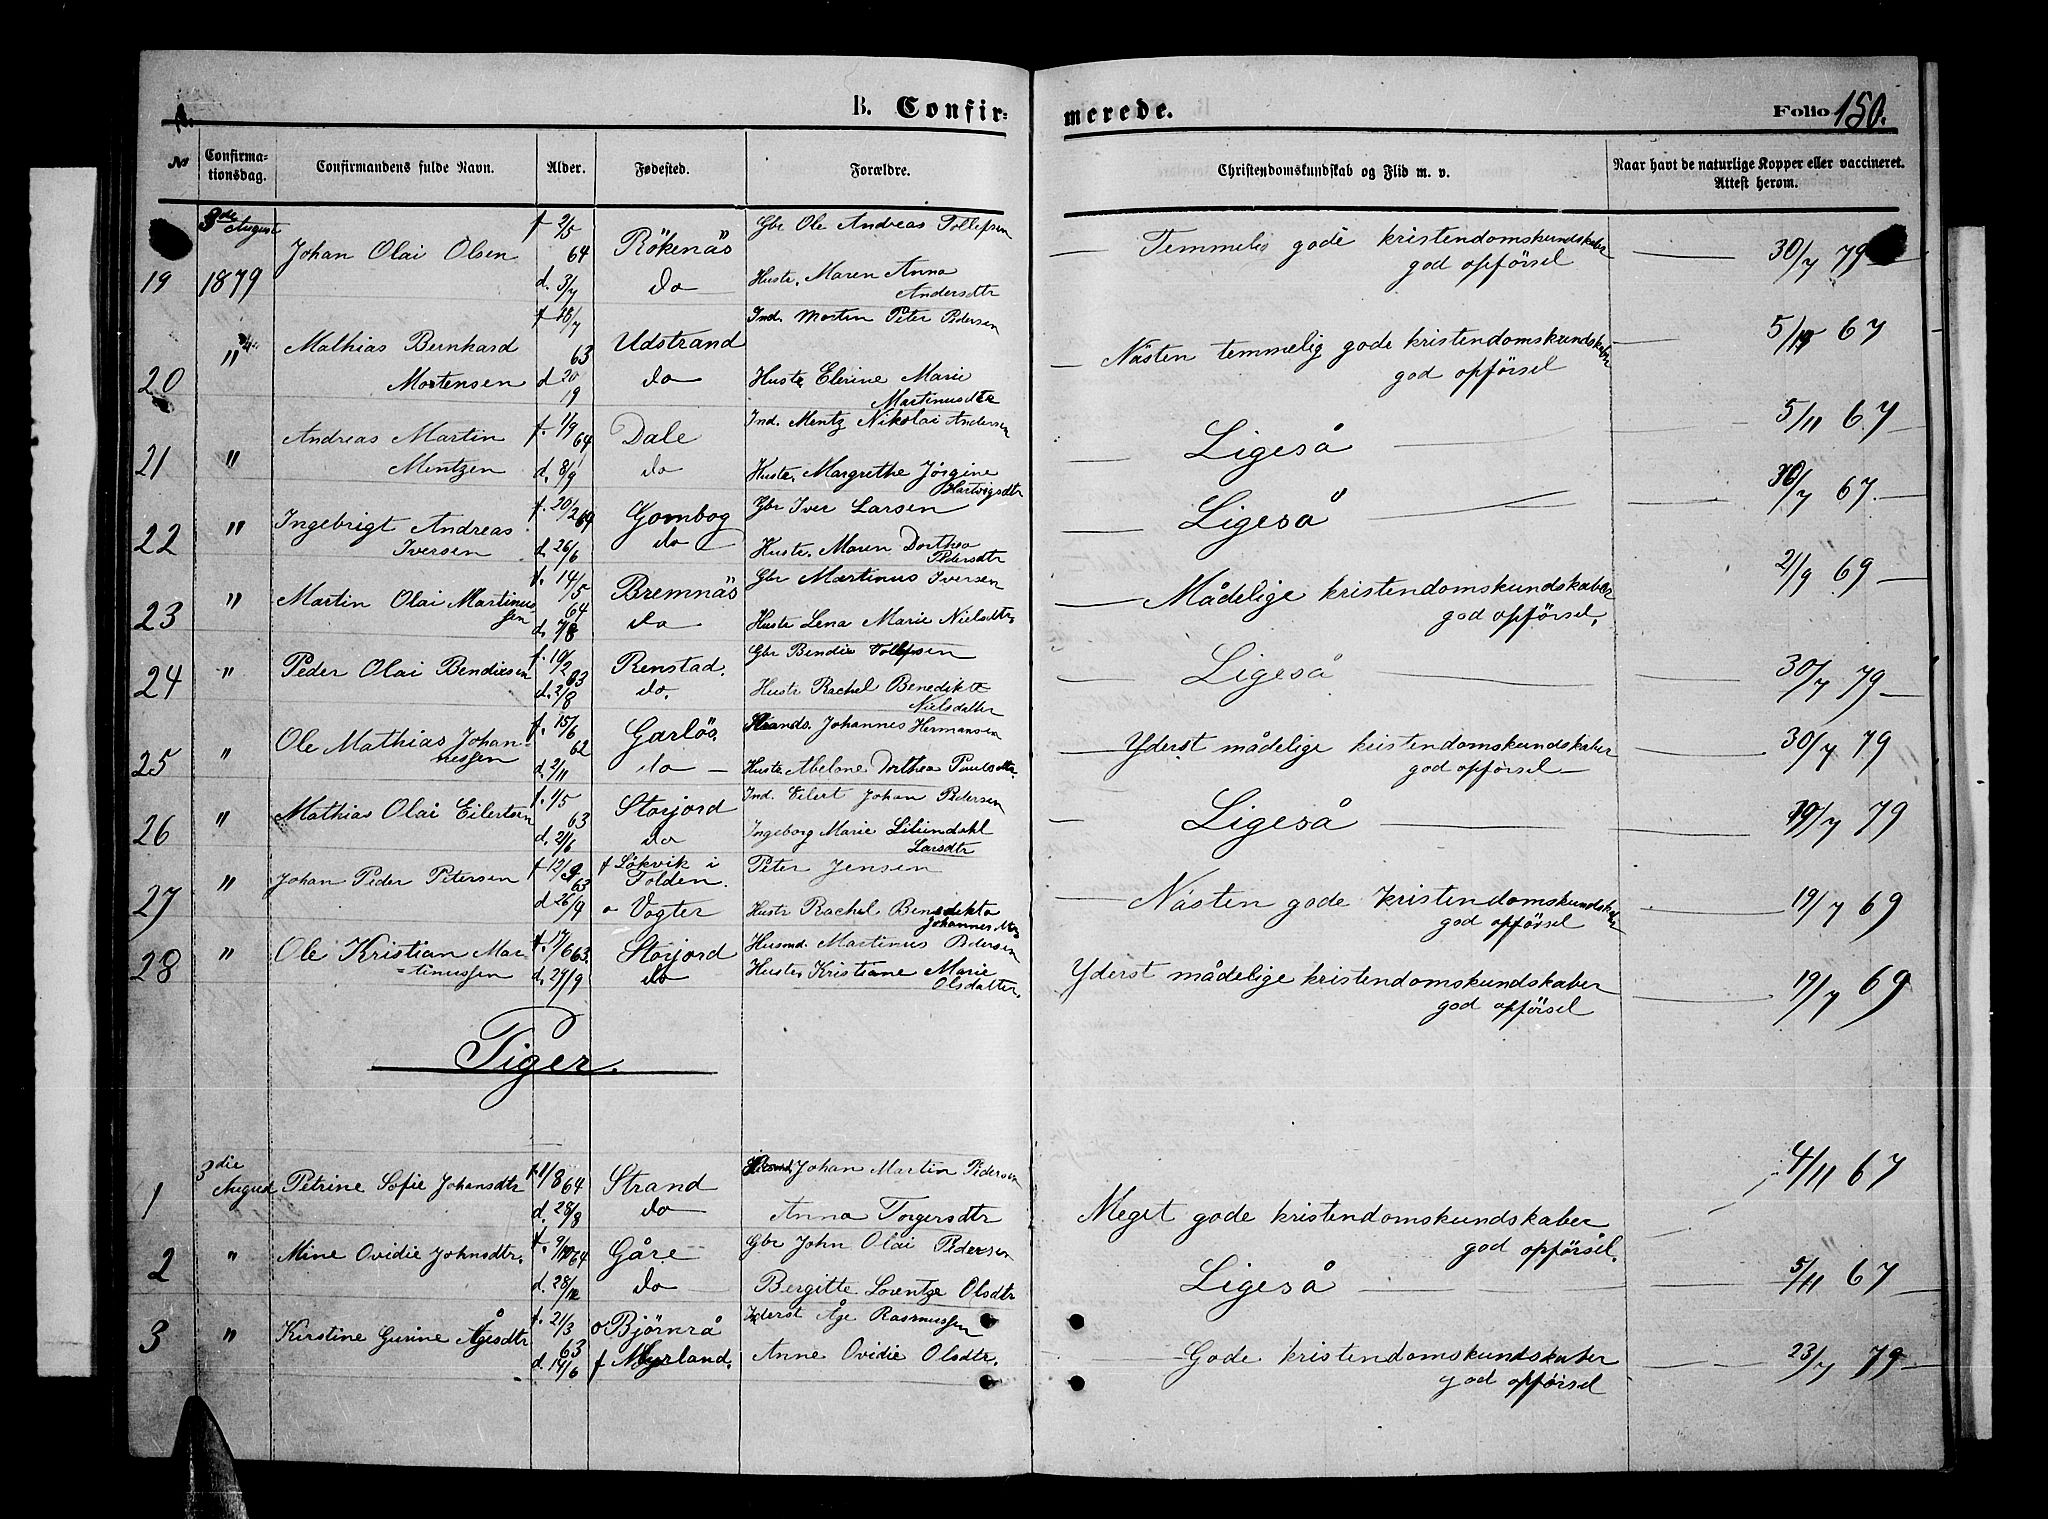 B. Confir-
merede.
Folio 150.
No
Confirma-
tionsdag.
Confirmandens fulde Navn.
Alder.
Fødested.
Forældre.
Christendomskundskab og Flid m. v.
Naar havt de naturlige Kopper eller vaccineret.
Attest herom.
3de August
19 1879 Johan Olai Olsen f 2/5 64 d. 3/7 Rökenäs do Gbr Ole Andreas Tollefsen
Hustr. Maren Anna
Andersdtr
Temmelig gode kristendomskundskaber 30/7 79
god opførsel
20 " Mathias Bernhard f 18/7 63 Udstrand Ind. Morten Peter Pedersen
Mortensen d 20/9 do Hustr Elerine Marie
Martinusdtr
Nästen temmelig gode kristendomskundskaber 67
god opførsel
21 " Andreas Martin f. 1/9 64 Dale Ind. Mentz Nikolai Andersen
Mentzen d. 8/9 do Hustr. Margrethe Jørgine
Hartvigsdtr
Ligeså 5/11 67
22 " Ingebrigt Andreas f. 20/2 64 Gombog Gbr Iver Larsen
Iversen d. 26/6 do Hustr. Maren Dorthea
Pedersdtr
Ligeså 30/7 67
23 " Martin Olai Martinus f. 14/5 64 Bremnäs Gbr Martinus Iversen
sen d. 7/8 do Hustr Lena Marie Nielsdtr
Mådelige kristendomskundskaber 2/9 69
god opførsel,
24 " Peder Olai Bendixsen f. 10/2 63 Renstad. Gbr Bendix Tollefsen
d. 2/8 do. Hustr Rachel Benedikte
Nielsdatter
Ligeså 30/7 79
25 " Ole Mathias Johan- f. 15/6 62 Garlös. Johannes Hermansen
nessen d. 2/11 do Hustr Abelone Dorthea Paulsdtr
Yderst mådelige kristendomskundskaber 30/7 79
god opførsel
26 " Mathias Olai Eilertsen f. 1/5 63 Storjord Ind. Eilert Johan Pedersen
d. 2/6 do Ingeborg Marie Liliendahl
Larsdtr
Ligeså 19/7 79
27 " Johan Peder Petersen f 12/ 63 f Lökvik i Peter Jensen
Folden.
d 26/9 o Vogter Hustr Rachel Benedikta
Johannes
Nästen gode kristendomskundskaber 19/7 69
god opførsel
28 " Ole Kristian Mar- f. 17/6 63. Storjord Husmd. Martinus Pedersen
tinussen d. 27/9 do Hustr. Kristiane Marie
Olsdatter,
Yderst mådelige kristendomskundskaber 19/7 69
god opførsel
Piger.
3die
1 August Petrine Sofie Johansdtr f 11/8 64 Strand Johan Martin Pedersen
d. 28/8 do Anna Torgersdtr
Meget gode kristendomskundskaber 4/11 67
god opførsel.
2 " Mine Ovidie Johnsdtr. f. 9/10 64 Gåre Gbr John Olai Pedersen
d. 28/12 do Bergitte Lorentze Olsdtr
Ligeså 5/11 67
3 " Kirstine Gurine Ågesdtr f. 21/3 63 o Bjørnrå Inderst Åge Rasmussen
d. 14/6 f Myrland. Anne Ovidie Olsdtr.
Gode kristendomskundskaber 23/7 79
god opførsel